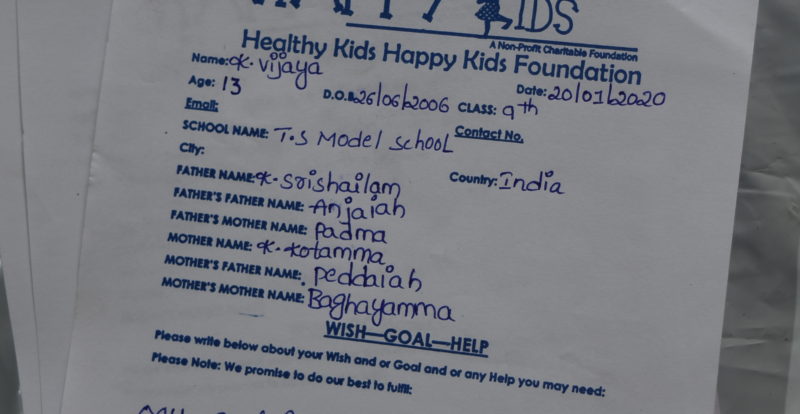 HAPPY KIDS
A Non-Profit Charitable Foundation
Healthy Kids Happy Kids Foundation
Name: K. vijaya
Age: 13 D.O.B. 26/06/2006 CLASS: 9th Date: 20/01/2020
Email: Contact No.
SCHOOL NAME: T.S Model school
City:
FATHER NAME: K. Srishailam Country: India
FATHER'S FATHER NAME: Anjaiah
FATHER'S MOTHER NAME: Padma
MOTHER NAME: K. Kotamma
MOTHER'S FATHER NAME: Peddaiah
MOTHER'S MOTHER NAME: Baghayamma
WISH—GOAL—HELP
Please write below about your Wish and or Goal and or any Help you may need:
Please Note: We promise to do our best to fulfil: